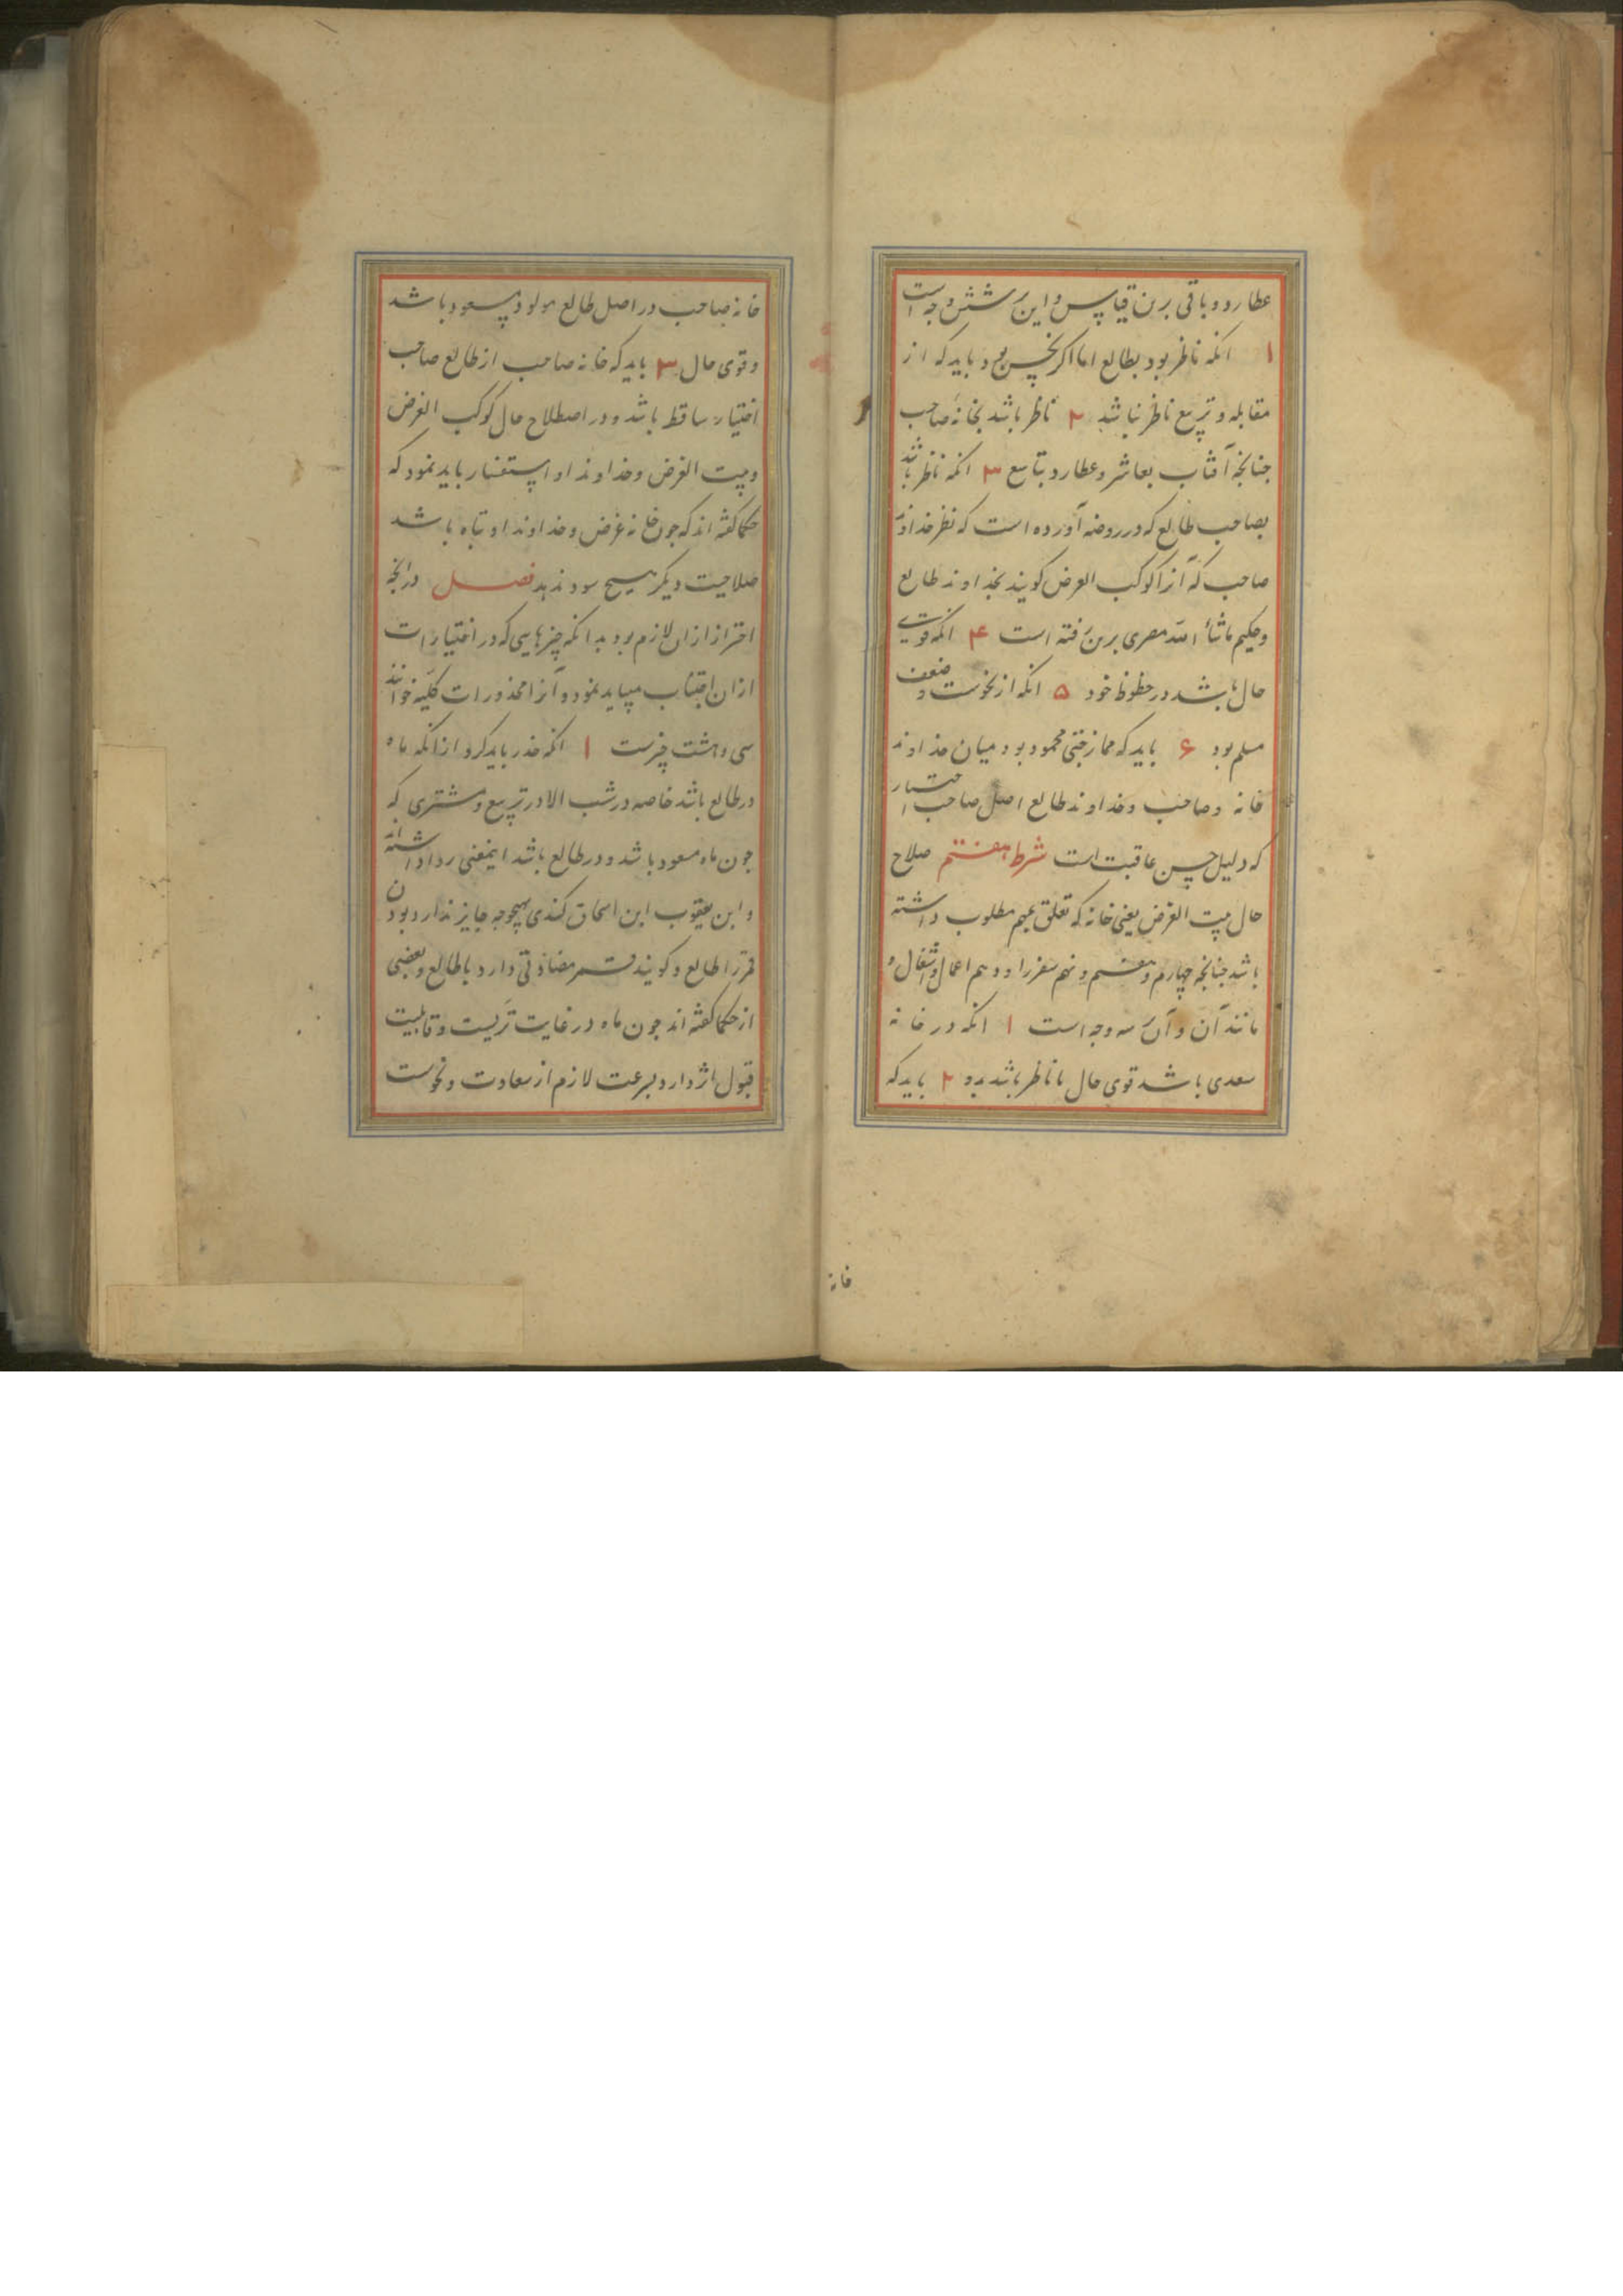 عطارد و باقی برین قیاس و این شش وجه است
۱ انکه ناظر بود بطالع اما اکر نحس بود باید که از
مقابله و تربیع ناظر نباشد ۲ ناظر باشد بخانه صاحب
جنانجه آفتاب بعاشر و عطارد بتاسع ۳ انکه ناظر باشد
بصاحب طالع که در روضه آورده است که نظر خداوند
صاحب که آنرا کوکب الغرض کویند بخداوند طالع
و حکیم ماشاء الله مصری برین رفته است ۴ انکه قوی
حال باشد در حظوظ خود ۵ انکه از نحوست و ضعف
مسلم بود ۶ باید که ممازجتی محمود بود میان خداوند
خانه و صاحب و خداوند طالع اصل صاحب اختیار
که دلیل حسن عاقبت است شرط هفتم صلاح
حال بیت الغرض یعنی خانه که تعلق بمهم مطلوب داشته
باشد جنانجه چهارم و هفتم و نهم سفر را و دهم اعمال و اشغال و
مانند آن و آن سه وجه است ۱ انکه در خانه
سعدی باشد قوی حال یا ناظر باشد بدو ۲ باید که
خانه
خانه صاحب در اصل طالع مولود مسعود باشد
و قوی حال ۳ باید که خانه صاحب از طالع صاحب
اختیار ساقط باشد و در اصطلاح حال کوکب الغرض
و بیت الغرض و خداوند او استفسار باید نمود که
حکما کفته اند که جون خانه غرض و خداوند او تباه باشد
صلاحیت دیکر هیچ سود ندهد فصل در انجه
احتراز از ان لازم بود بدانکه چیزهایی که در اختیارات
از ان اجتناب میباید نمود و آنرا محذورات کلیه خوانند
سی و هشت چیزست ۱ انکه حذر باید کرد از انکه ماه
در طالع باشد خاصه در شب الا در تربیع و مشتری که
جون ماه مسعود باشد و در طالع باشد اینمعنی روا داشته اند
و ابن یعقوب ابن اسحاق کندی بهیچوجه جایز ندارد بودن
قمر را طالع و کویند قمر مضادتی دارد با طالع و بعضی
از حکما کفته اند جون ماه در غایت تریست و قابلیت
قبول اثر دارد و بسرعت لازم از سعادت و نحوست